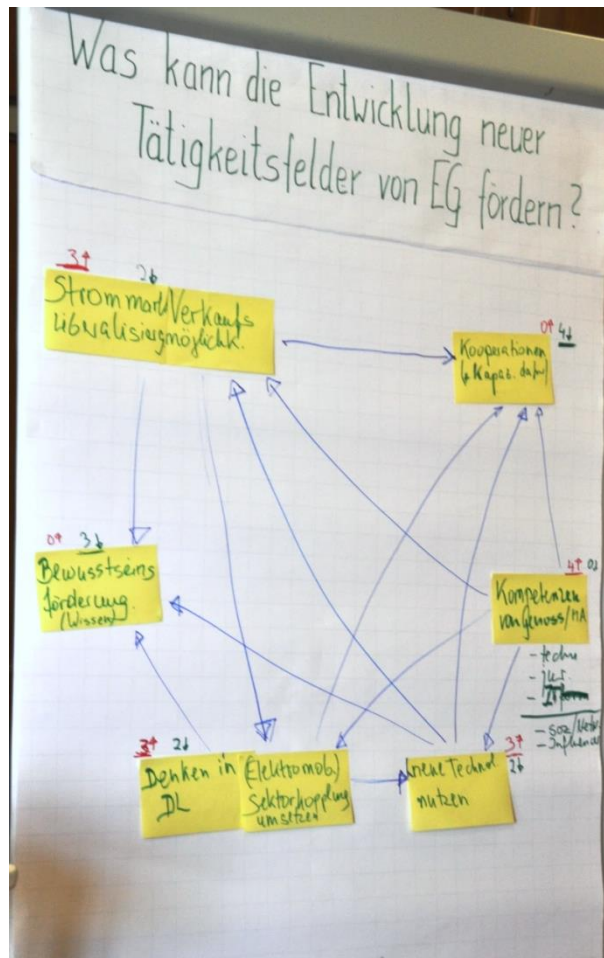 Was kann die Entwicklung neuer
Tätigkeitsfelder von EG fördern?
3↑ 2↓
Strommarkt Verkaufs
liberalisierg möglichk.
0↑ 4↓
Kooperationen
0↑ 3↓
Bewusstseins
förderung
(Wissen)
4↑ 0↓
Kompetenzen
von Genoss/MA
- techn
- jur.
- soz/
- Influenc
3↑ 2↓
Denken in
DL
(Elektromob.)
Sektorkopplung
umsetzen
3↑
2↓
neue Technol
nutzen